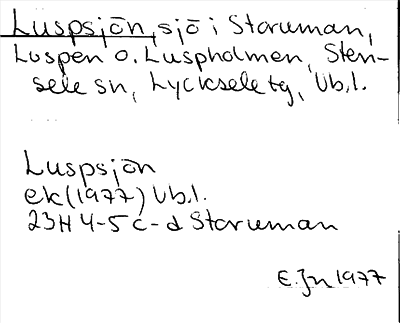 Luspsjön, sjö i Storuman,
Luspen o. Luspholmen, Sten-
sele sn, Lycksele tg, Vb.l.
Luspsjön
ek (1977) Vb.l.
23H 4-5 c-d Storuman
E.Jn 1977